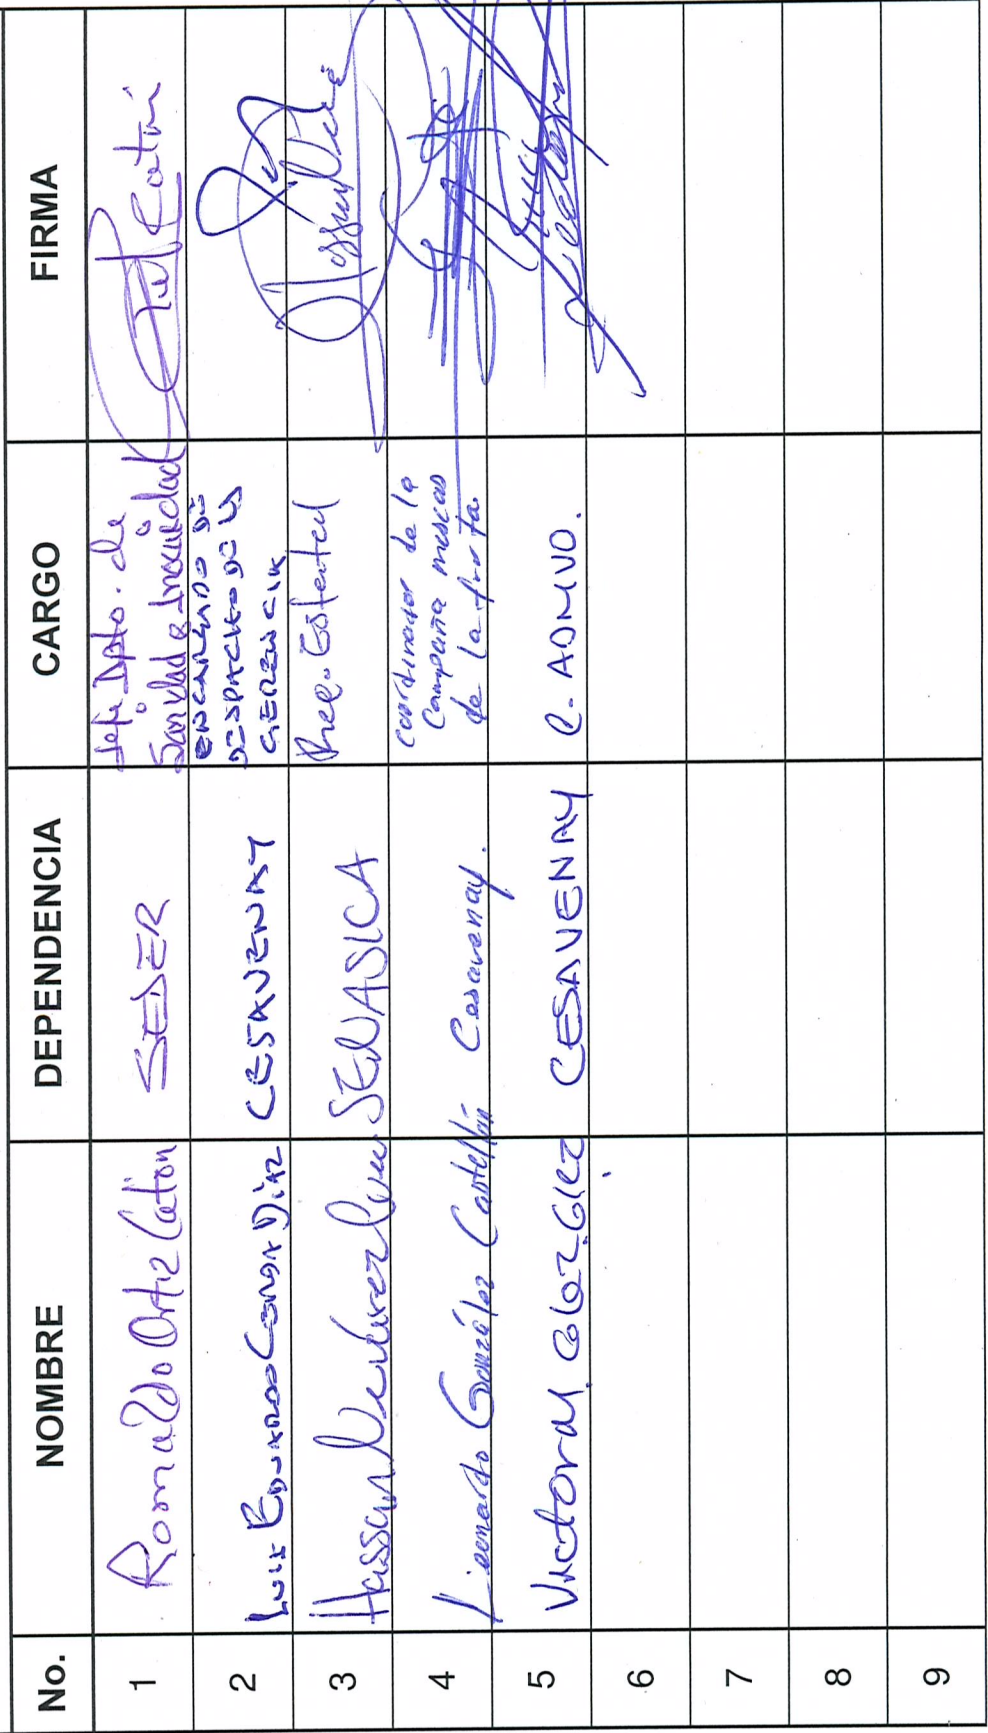 No. NOMBRE DEPENDENCIA CARGO FIRMA
1 Romualdo Ortiz Catón SEDER Jefe Dpto. de
Sanidad e Inocuidad
2 LUIS EDUARDO CONDA DÍAZ CESAVENAY ENCARGADO DE
DESPACHO DE LA
GERENCIA
3 Hassan SENASICA Rep. Estatal
4 Leonardo González Castellón Cesavenay. Coordinador de la
Campaña moscas
de la fruta.
5 Victor M. Glez. Glez CESAVENAY C. ADMVO.
6
7
8
9